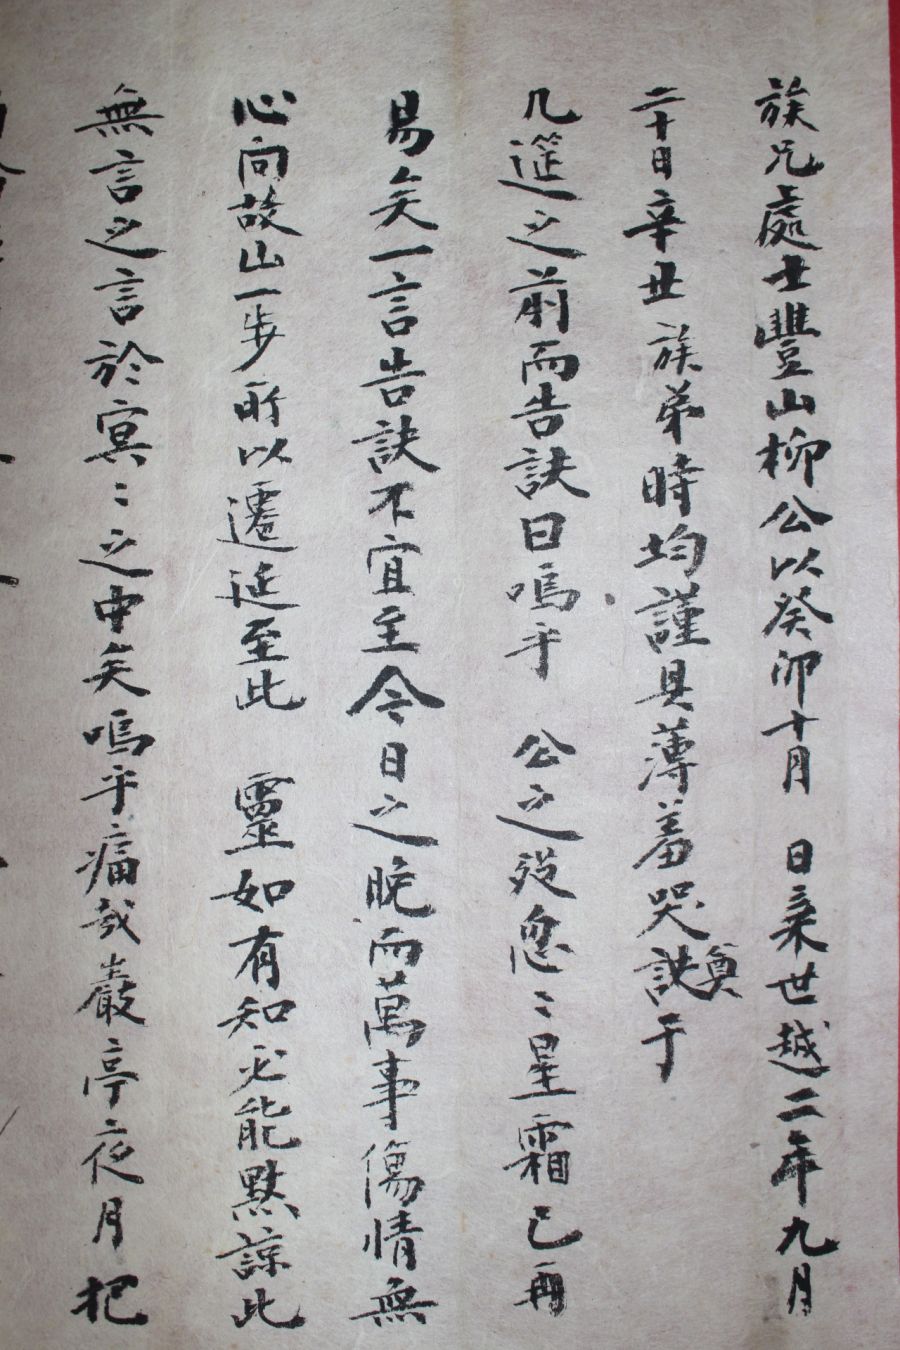 族兄處士豐山柳公以癸卯十月 日棄世越二年九月
二十日辛丑族弟時均謹具薄羞哭訣奠于
几筵之前而告訣曰嗚乎 公之歿忽〻星霜已再
易矣一言告訣不宜至今日之晚而萬事傷情無
心向故山一步所以遷延至此 靈如有知必能默諒此
無言之言於冥〻之中矣嗚乎痛哉巖亭夜月把